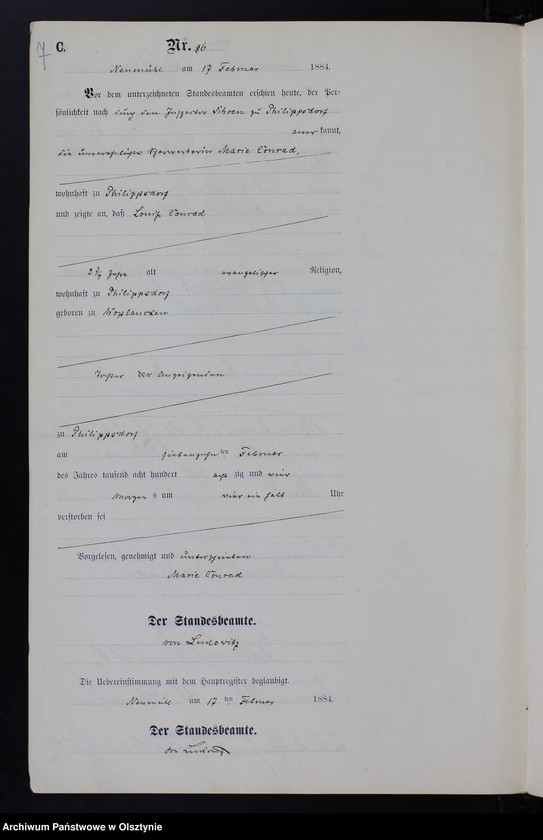 7 C. Nr. 26
Neumühl am 17 Februar 1884.
Vor dem unterzeichneten Standesbeamten erschien heute, der Per-
sönlichkeit nach durch den Schoen zu Philippsdorf
aner kannt,
die unverehelichte Marie Conrad,
wohnhaft zu Philippsdorf
und zeigte an, daß Louise Conrad
2 Jahre alt evangelischer Religion,
wohnhaft zu Philippsdorf
geboren zu
Tochter der Anzeigenden
zu Philippsdorf
am siebenzehn ten Februar
des Jahres tausend acht hundert acht zig und vier
Morgen s um vier ein halb Uhr
verstorben sei
Vorgelesen, genehmigt und unterschrieben
Marie Conrad
Der Standesbeamte.
von
Die Uebereinstimmung mit dem Hauptregister beglaubigt.
Neumühl am 17 ten Februar 1884.
Der Standesbeamte.
von
Archiwum Państwowe w Olsztynie